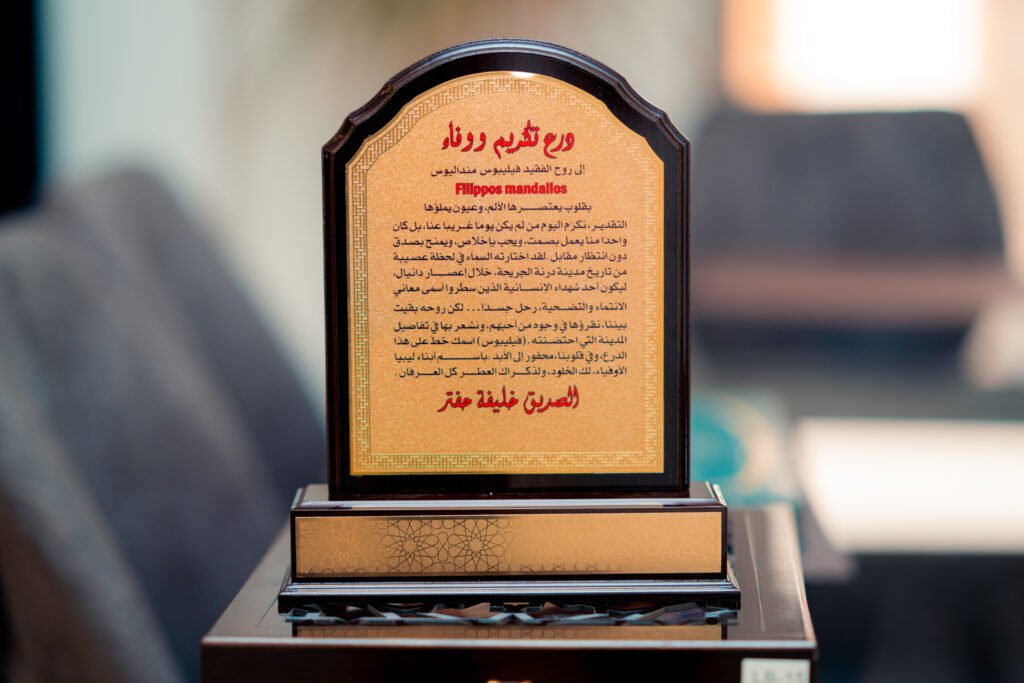 درع تكريم ووفاء
إلى روح الفقيد فيليبوس منداليوس
Filippos mandallos
بقلوب يعتصرها الألم، وعيون يملؤها
التقدير، نكرم اليوم من لم يكن يوما غريبا عنا، بل كان
واحدا منا يعمل بصمت، ويحب بإخلاص، ويمنح بصدق
دون انتظار مقابل. لقد اختارته السماء في لحظة عصيبة
من تاريخ مدينة درنة الجريحة، خلال إعصار دانيال،
ليكون أحد شهداء الإنسانية الذين سطروا أسمى معاني
الانتماء والتضحية، رحل جسدا... لكن روحه بقيت
بيننا، نقرؤها في وجوه من أحبهم، ونشعر بها في تفاصيل
المدينة التي احتضنته. (فيليبوس) اسمك خط على هذا
الدرع، وفي قلوبنا، محفور إلى الأبد. باسم أبناء ليبيا
الأوفياء، لك الخلود، ولذكراك العطر كل العرفان.
الصديق خليفة حفتر